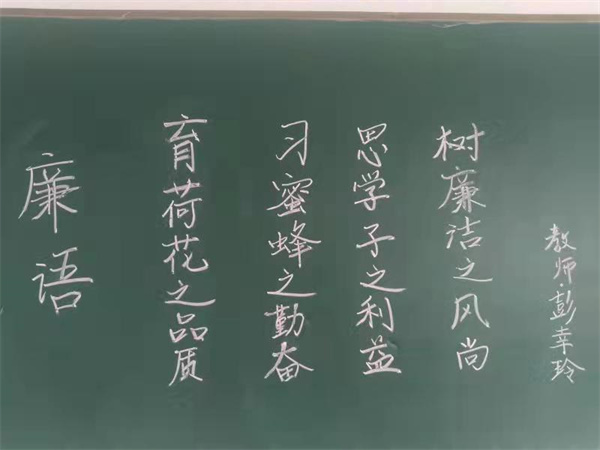 廉语
育荷花之品质
习蜜蜂之勤奋
思学子之利益
树廉洁之风尚
教师:彭幸玲